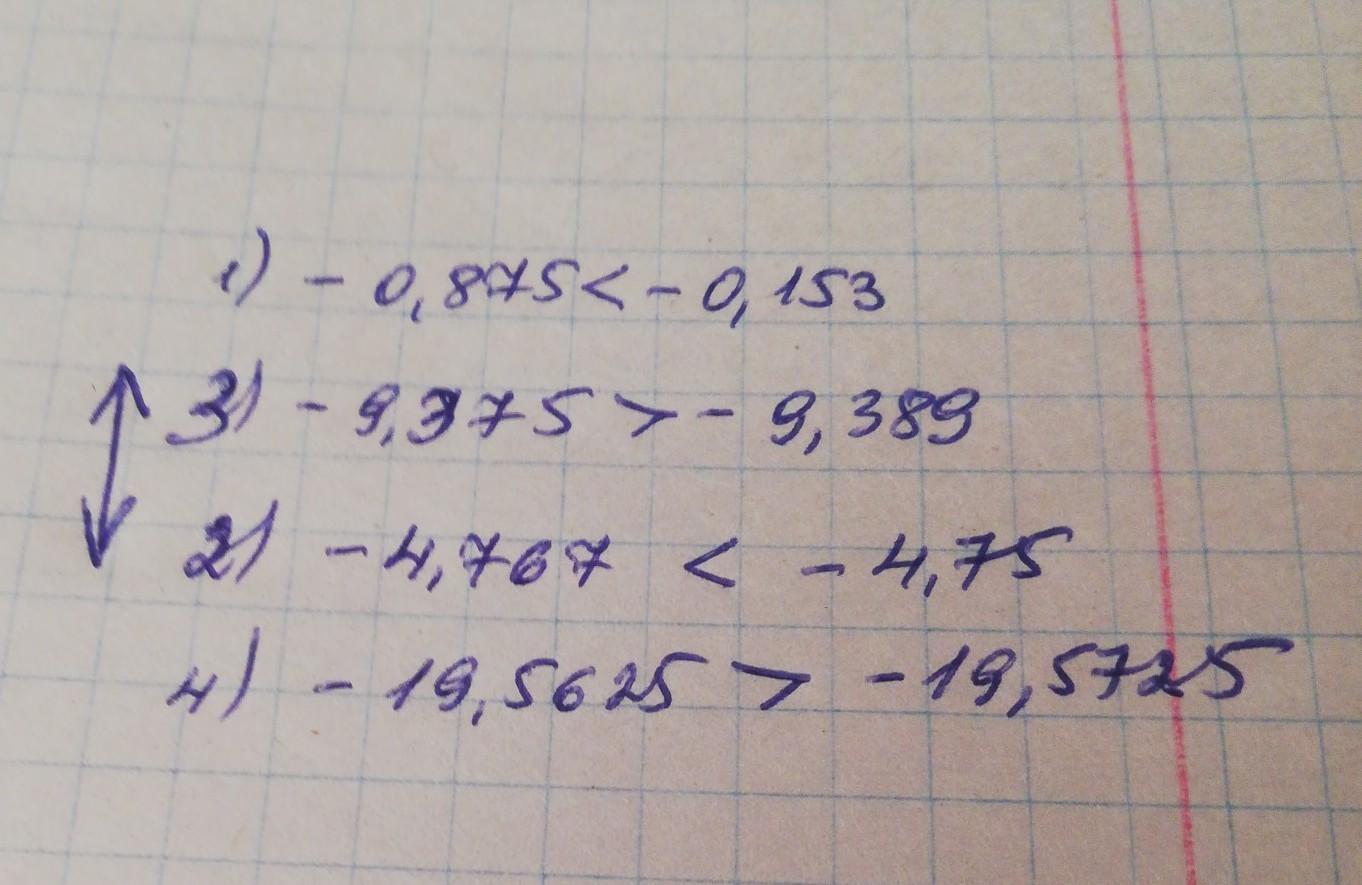 1) - 0,875 < - 0,153
3) - 9,375 > - 9,389
2) - 4,767 < - 4,75
4) - 19,5625 > - 19,5725